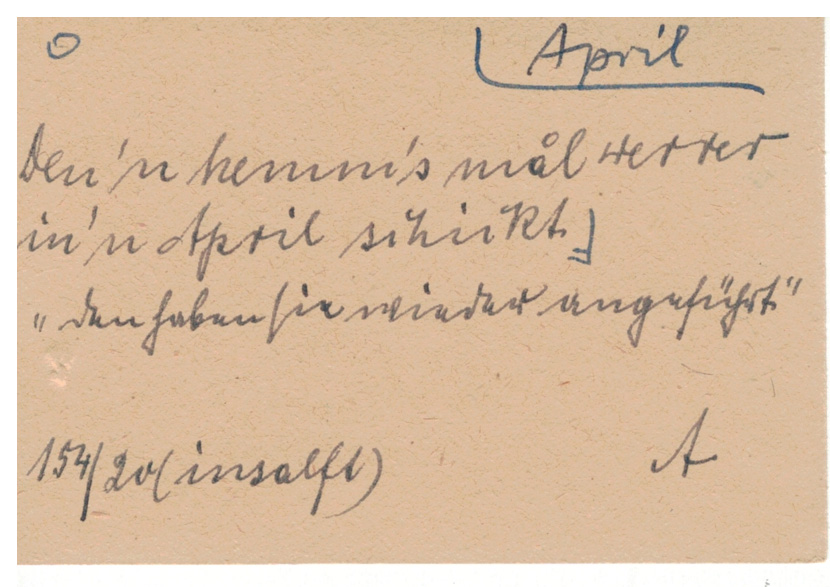 o
April
Den'n hemm's mål werrer
in'n April schickt.
"den haben sie wieder angeführt"
154/20 (insalft)
A